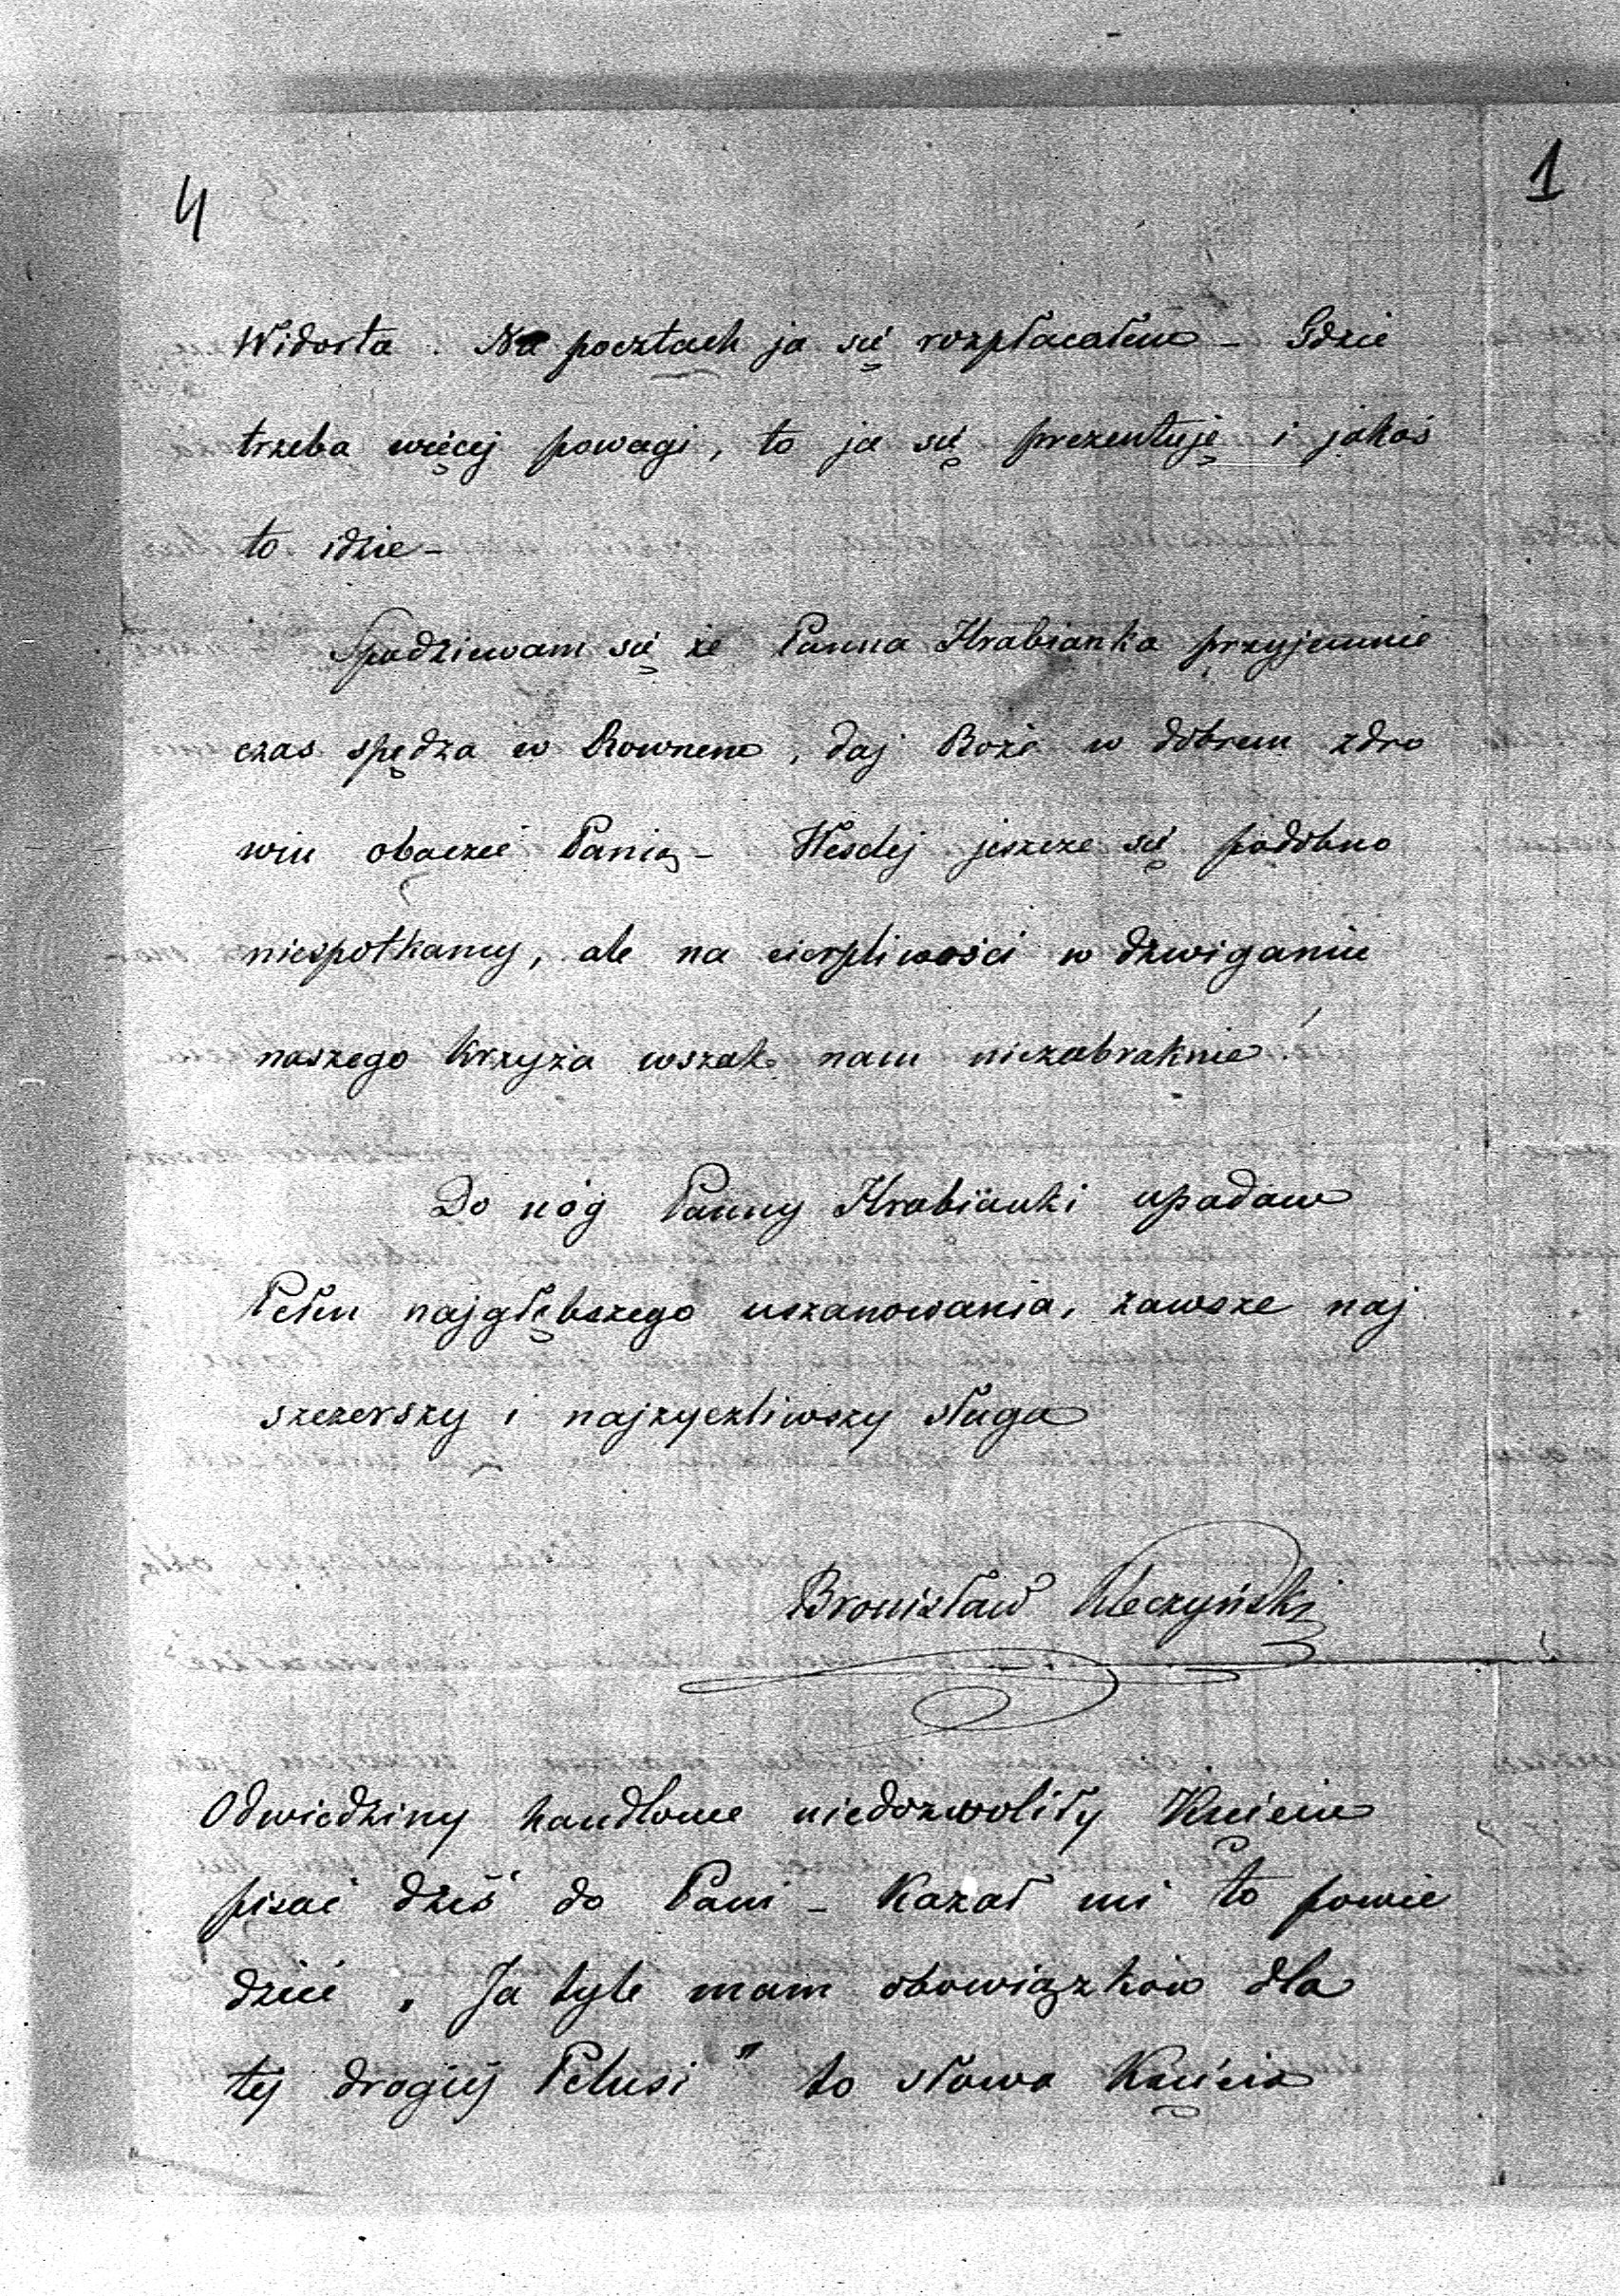 4
1
Widorta. Na pocztach ja się rozpłacałem – Gdzie
trzeba więcej powagi, to ja się prezentuję i jakoś
to idzie –
Spodziewam się że Panna Hrabianka przyjemnie
czas spędza w Rownem, daj Boże w dobrem zdro
wiu obaczić Panią – jeszcze się podobno
niespotkamy, ale na cierpliwości w dźwiganiu
naszego krzyża wszak nam niezabraknie!
Do nóg Panny Hrabianki upadam
Pełen najgłębszego uszanowania, zawsze naj
szczerszy i najżyczliwszy sługa
Bronisław
Odwiedziny handlowe niedozwoliły Księciu
pisać dziś do Pani – Kazał mi to powie
dzieć „Ja tyle mam obowiązków dla
tej drogiej Pelusi" to słowa Księcia